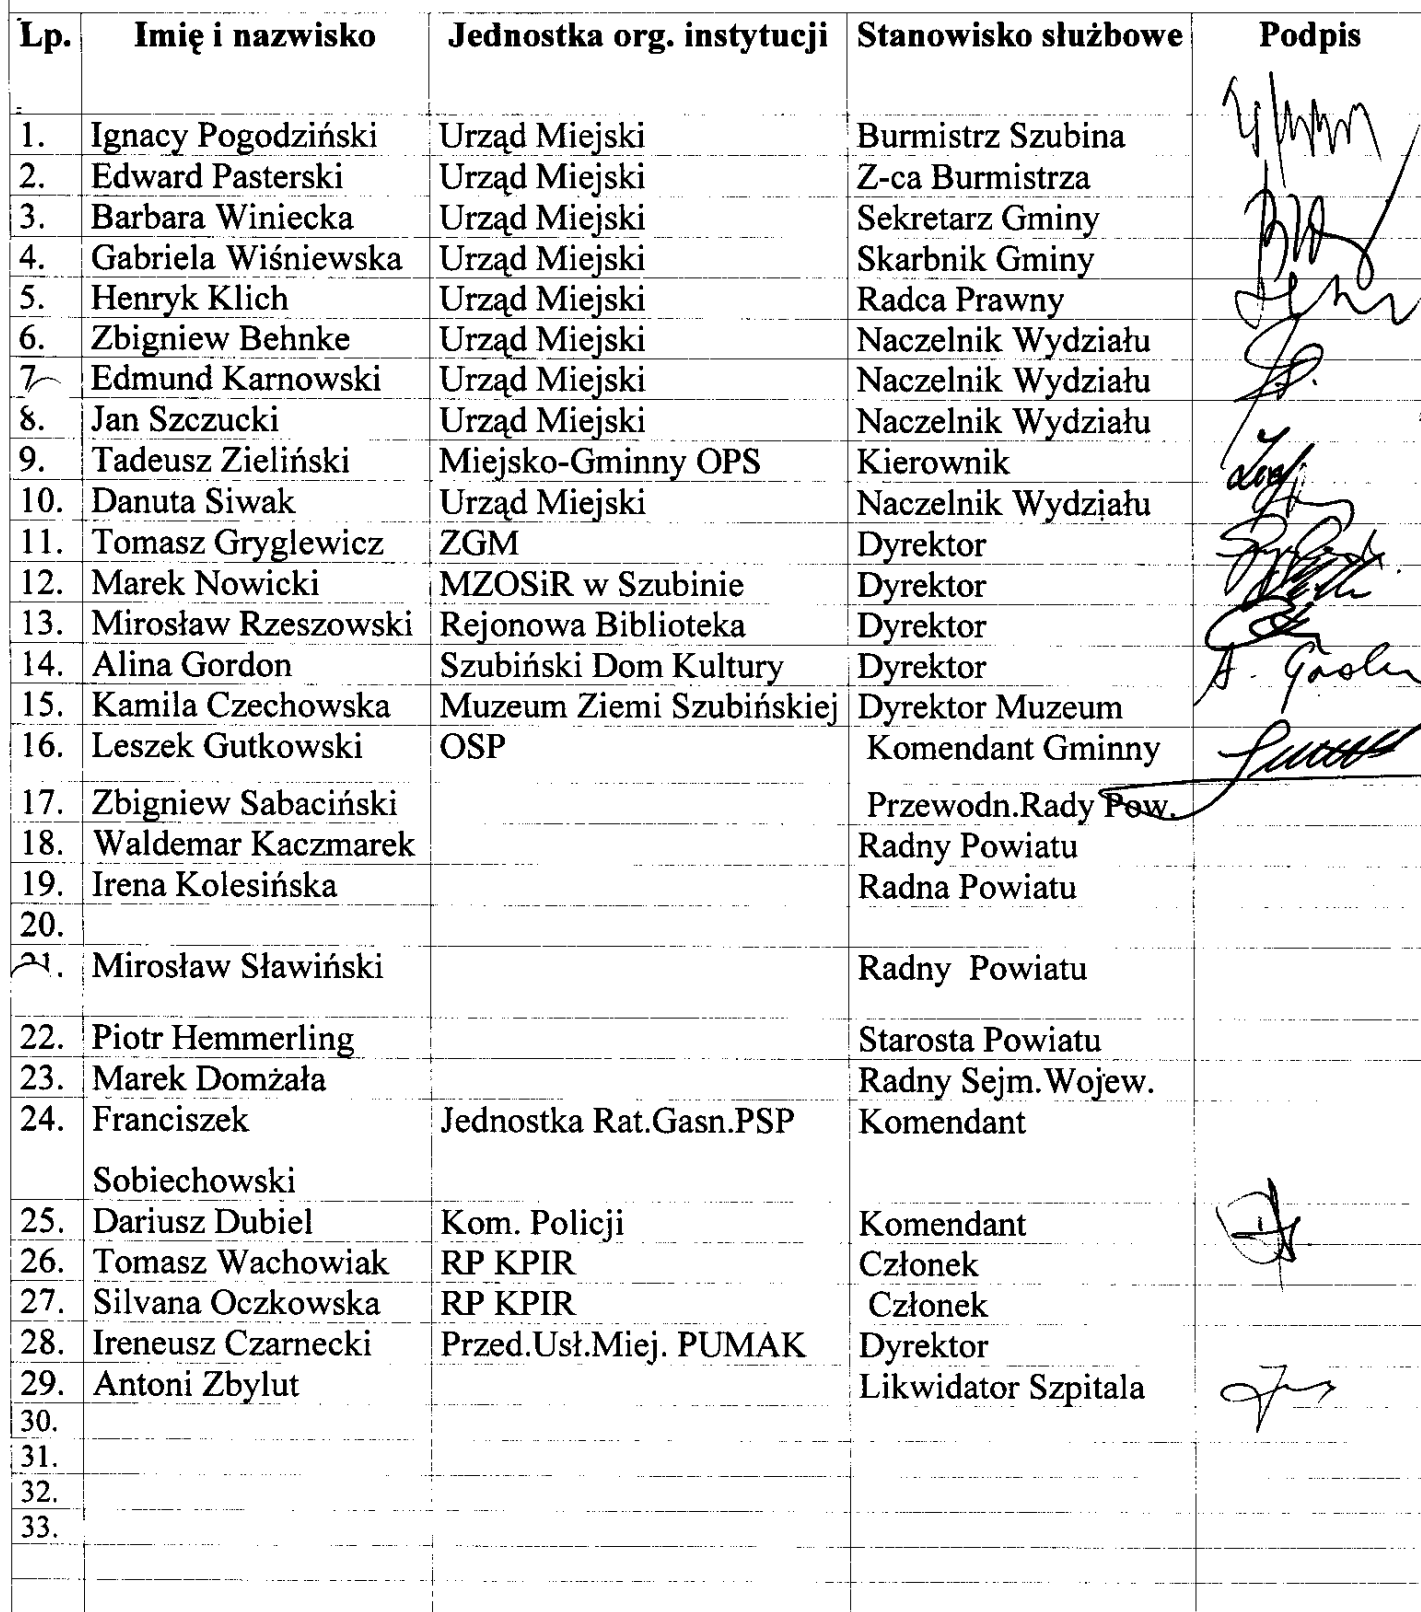 Lp. Imię i nazwisko Jednostka org. instytucji Stanowisko służbowe Podpis
1. Ignacy Pogodziński Urząd Miejski Burmistrz Szubina
2. Edward Pasterski Urząd Miejski Z-ca Burmistrza
3. Barbara Winiecka Urząd Miejski Sekretarz Gminy
4. Gabriela Wiśniewska Urząd Miejski Skarbnik Gminy
5. Henryk Klich Urząd Miejski Radca Prawny
6. Zbigniew Behnke Urząd Miejski Naczelnik Wydziału
7 Edmund Karnowski Urząd Miejski Naczelnik Wydziału
8. Jan Szczucki Urząd Miejski Naczelnik Wydziału
9. Tadeusz Zieliński Miejsko-Gminny OPS Kierownik
10. Danuta Siwak Urząd Miejski Naczelnik Wydziału
11. Tomasz Gryglewicz ZGM Dyrektor
12. Marek Nowicki MZOSiR w Szubinie Dyrektor
13. Mirosław Rzeszowski Rejonowa Biblioteka Dyrektor
14. Alina Gordon Szubiński Dom Kultury Dyrektor
15. Kamila Czechowska Muzeum Ziemi Szubińskiej Dyrektor Muzeum
16. Leszek Gutkowski OSP Komendant Gminny
17. Zbigniew Sabaciński Przewodn.Rady Pow.
18. Waldemar Kaczmarek Radny Powiatu
19. Irena Kolesińska Radna Powiatu
20.
21. Mirosław Sławiński Radny Powiatu
22. Piotr Hemmerling Starosta Powiatu
23. Marek Domżała Radny Sejm.Wojew.
24. Franciszek Jednostka Rat.Gasn.PSP Komendant
Sobiechowski
25. Dariusz Dubiel Kom. Policji Komendant
26. Tomasz Wachowiak RP KPIR Członek
27. Silvana Oczkowska RP KPIR Członek
28. Ireneusz Czarnecki Przed.Usł.Miej. PUMAK Dyrektor
29. Antoni Zbylut Likwidator Szpitala
30.
31.
32.
33.